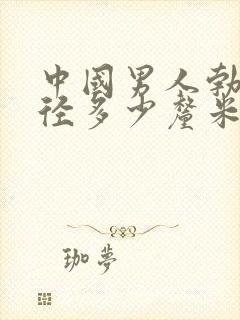 中國男人勃
径多少釐米
珈夢